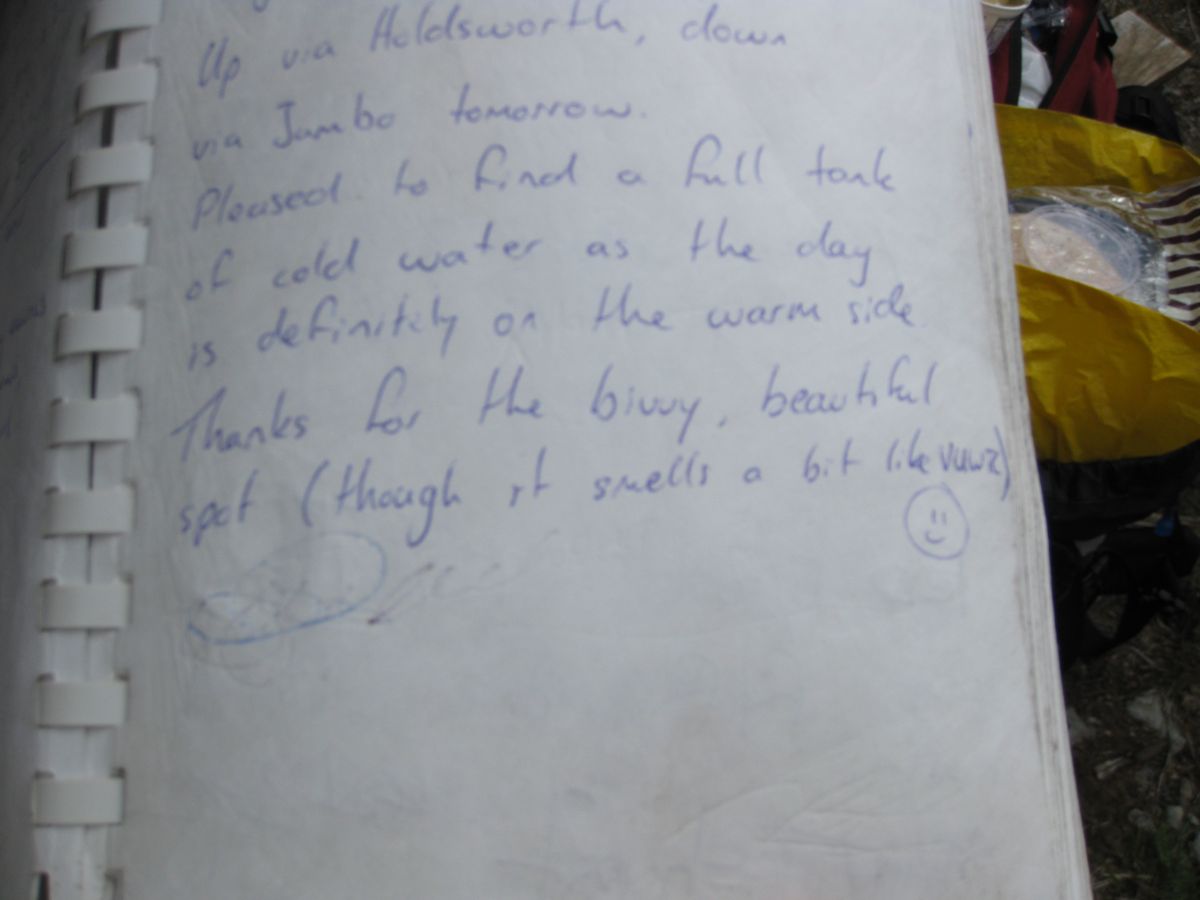 Up via Holdsworth, down
via Jumbo tomorrow.
Pleased to find a full tank
of cold water as the day
is definitely on the warm side
Thanks for the bivvy, beautiful
spot (though it smells a bit like VUWZ)